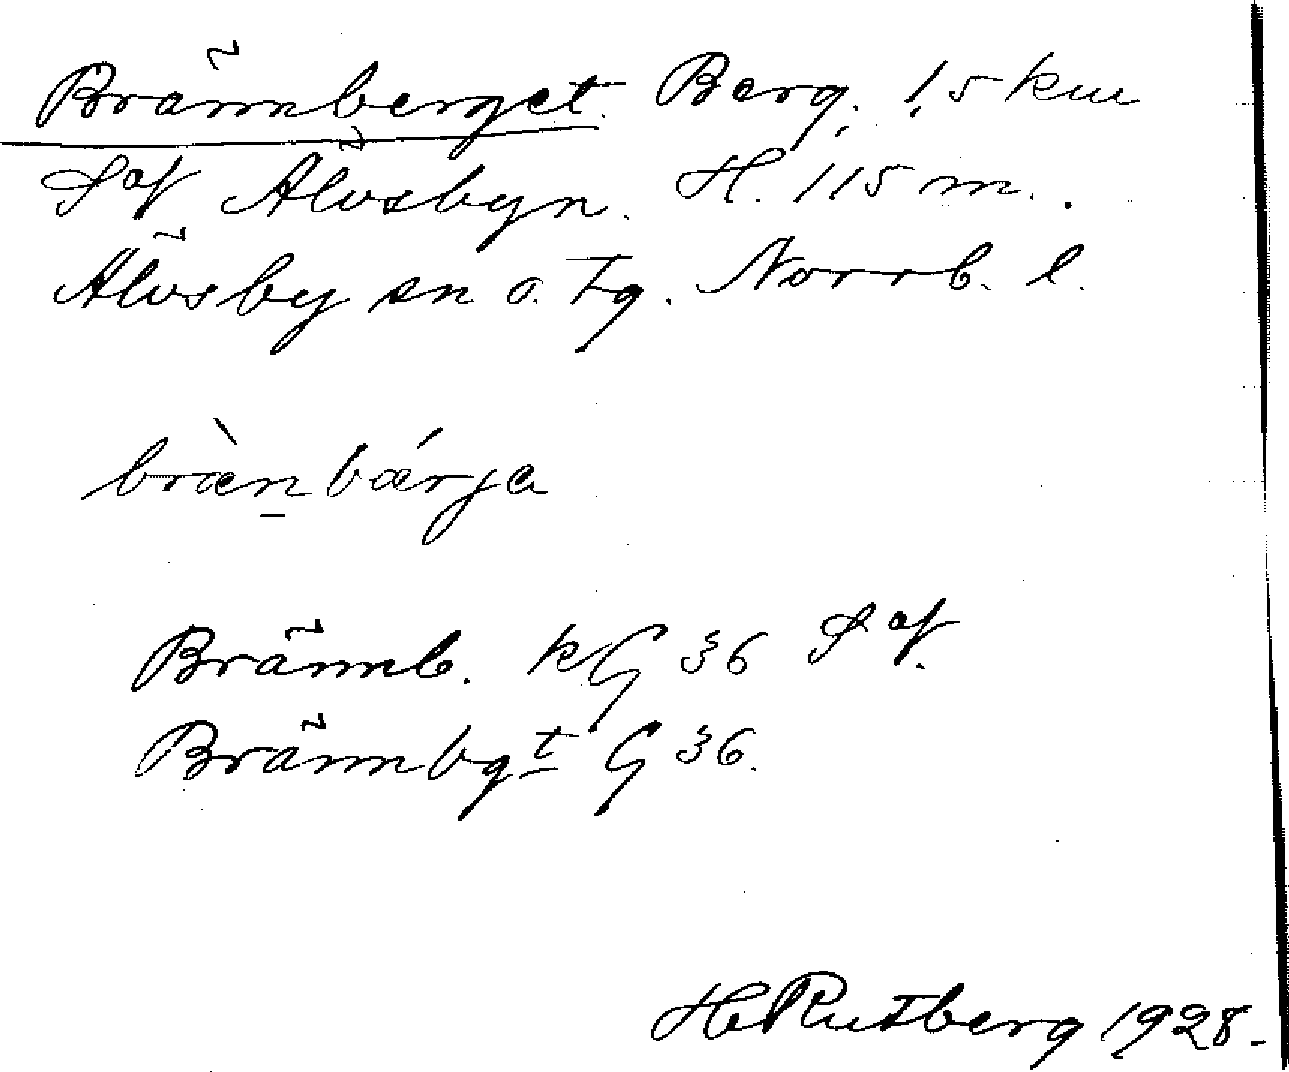 Brännberget. Berg. 1,5 km
S of Älvsbyn. H. 115 m.
Älvsby sn o. tg. Norrb. l.
bræ̀n̲bǽrja
Brännb. kG 36 S of.
Brännbgt G 36.
H Rutberg 1928.